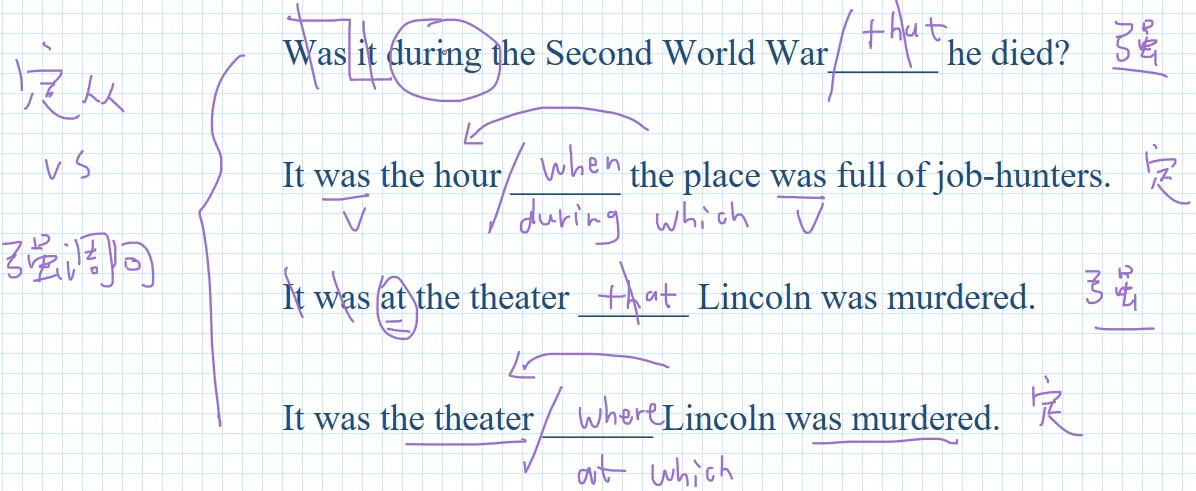 Was it during the Second World War that he died? 强
定从
It was the hour when the place was full of job-hunters. 定
vs
V during which V
强调句
It was at the theater that Lincoln was murdered. 强
It was the theater where Lincoln was murdered. 定
at which